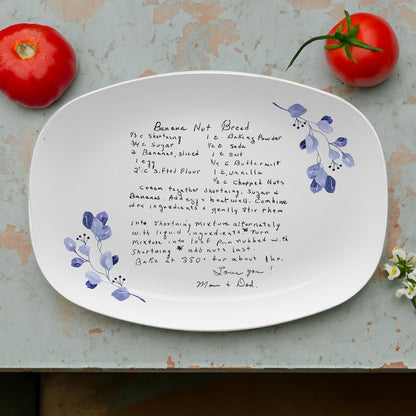 Banana Nut Bread
1/3 c shortning 1 t Baking Powder
3/4 c Sugar 1/2 t Soda
2 Bananas, sliced 1 t Salt
1 egg 1/4 c Buttermilk
2 1/2 c Sifted Flour 1 t vanilla
1/2 c Chopped Nuts
Cream together Shortning, Sugar &
Bananas. Add egg & beat well. Combine
dry ingredients & gently stir them
into Shortning mixture alternately
with liquid ingredients * Turn
mixture into loaf pan rubbed with
Shortning * add nuts last
Bake at 350° for about 1 hr.
Love you!
Mom & Dad.